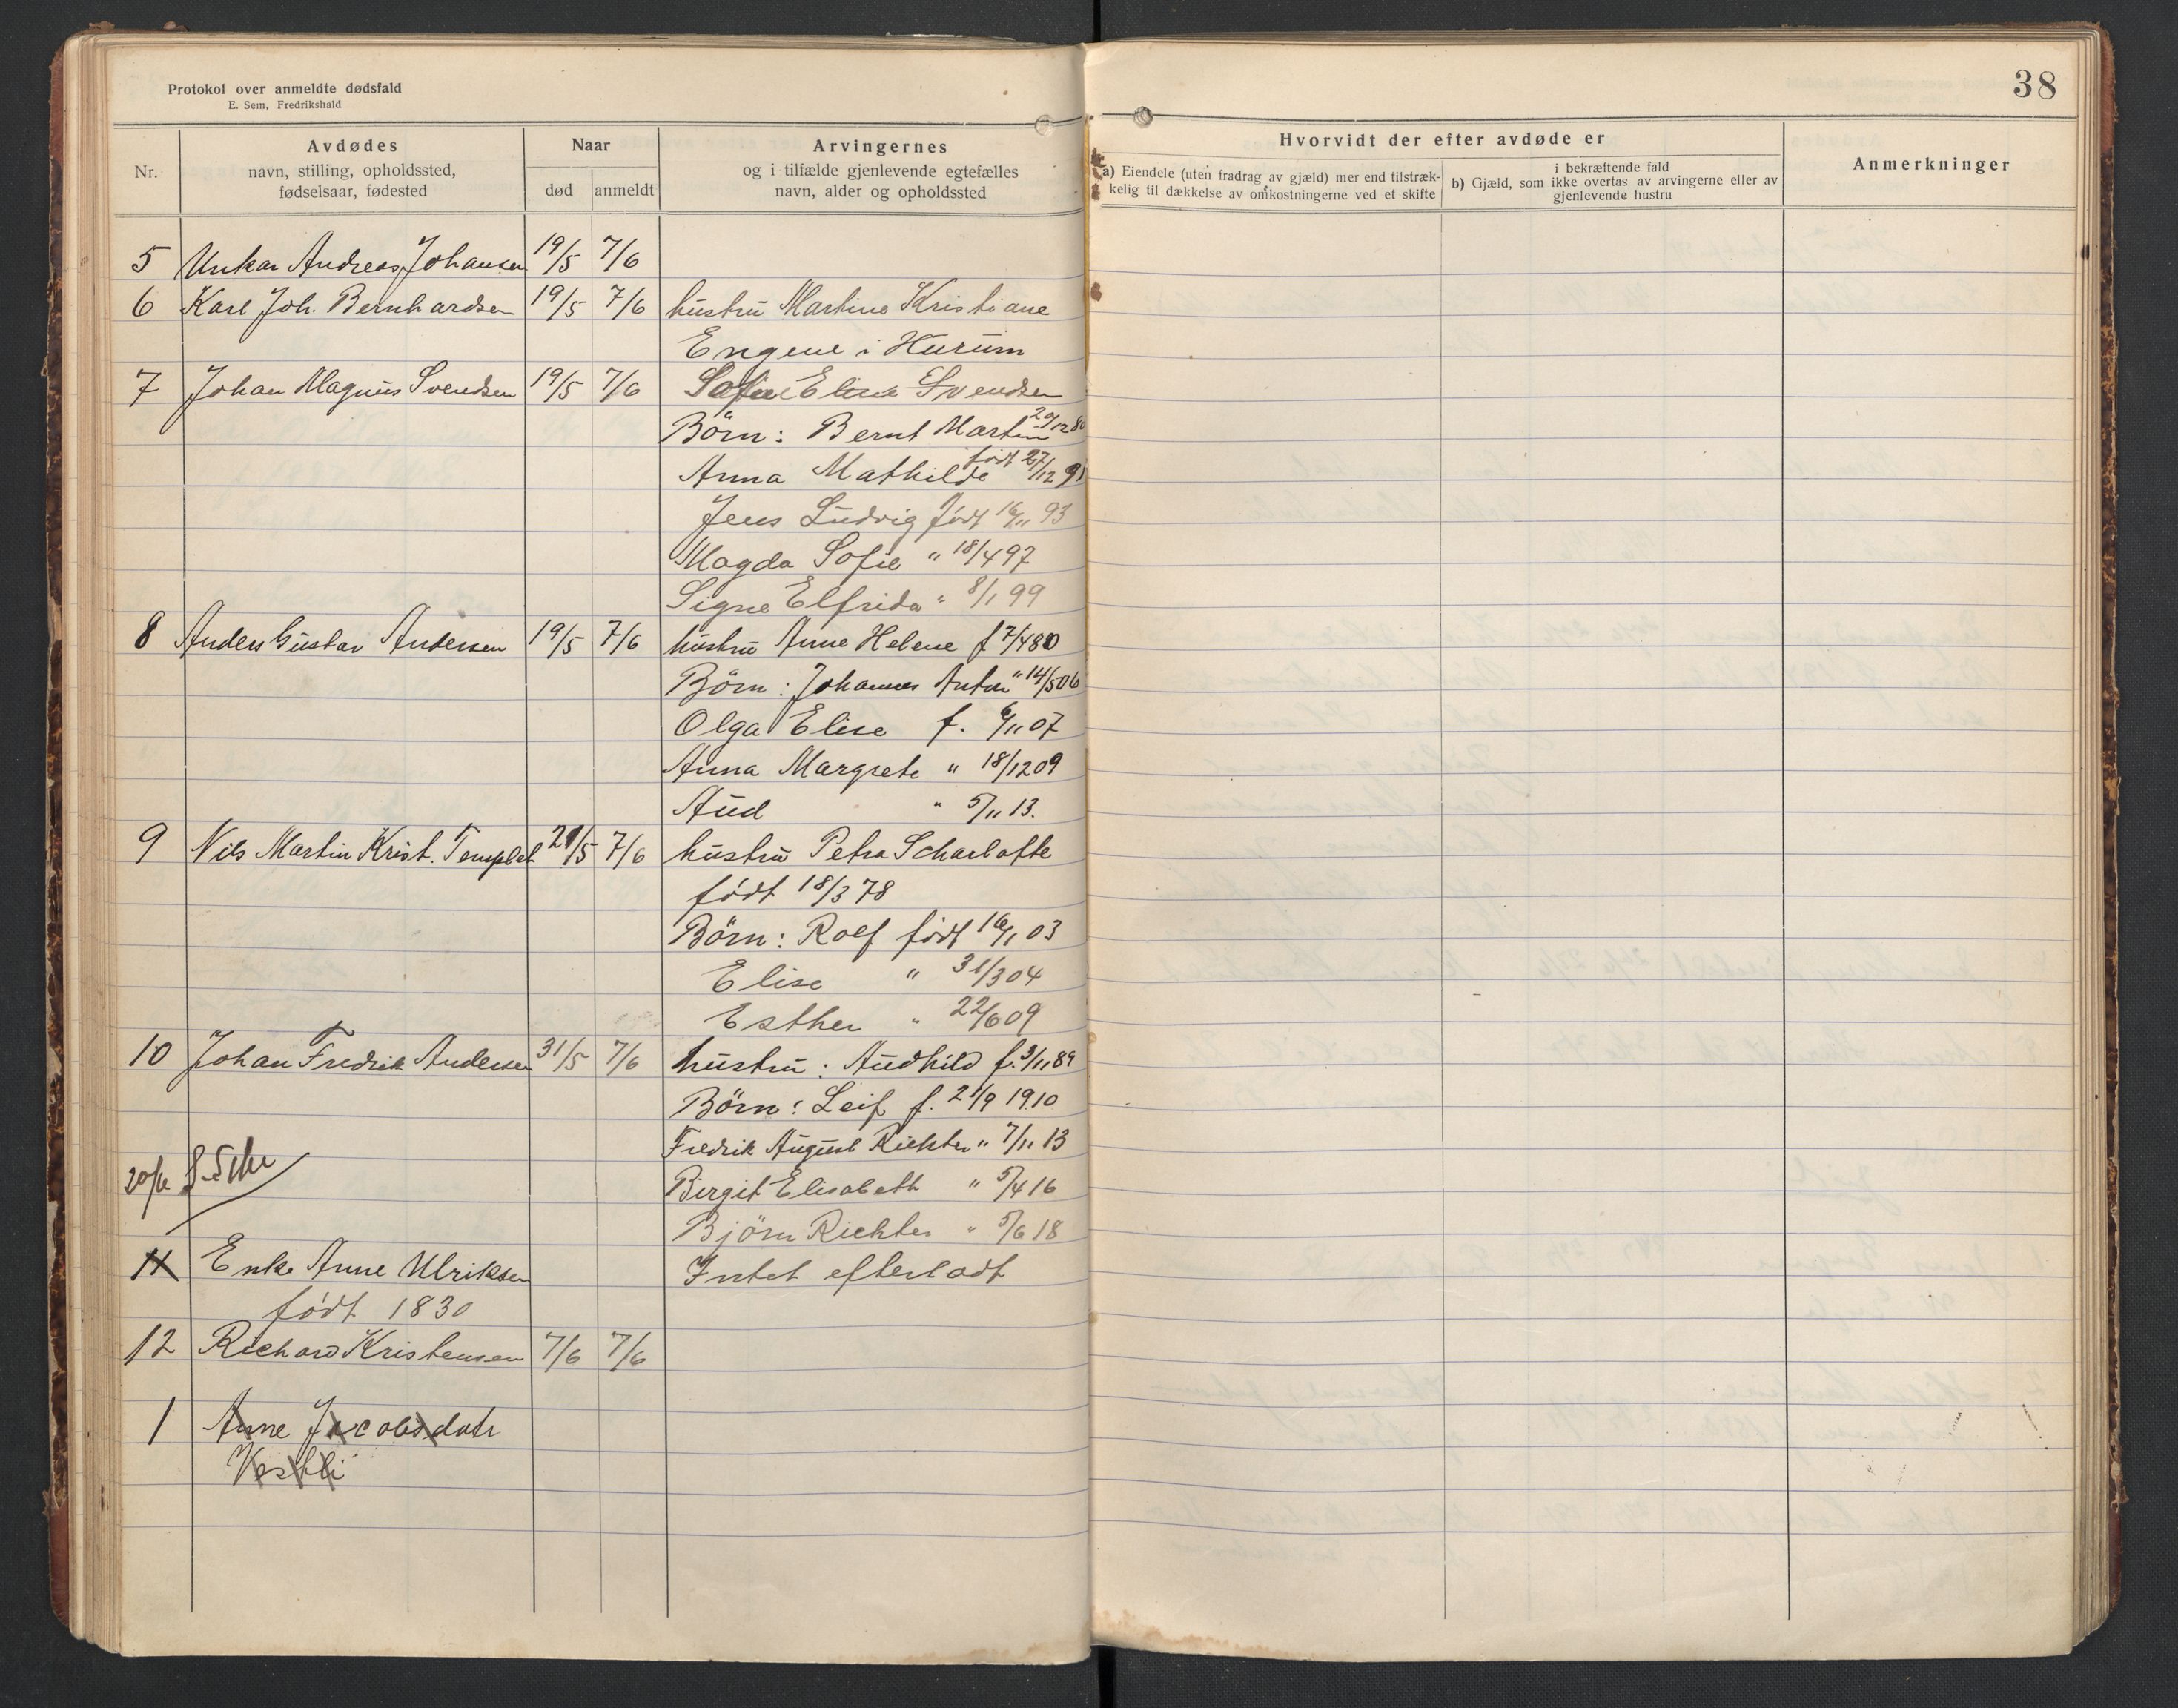 Protokol over anmeldte dødsfald
E. Sem, Fredrikshald
38
Nr.
Avdødes
navn, stilling, opholdssted,
fødselsaar, fødested
Naar
død anmeldt
Arvingernes
og i tilfælde gjenlevende egtefælles
navn, alder og opholdssted
Hvorvidt der efter avdøde er
a) Eiendele (uten fradrag av gjæld) mer end tilstræk-
kelig til dækkelse av omkostningerne ved et skifte
i bekræftende fald
b) Gjæld, som ikke overtas av arvingerne eller av
gjenlevende hustru
Anmerkninger
5 Unkar Andreas Johansen 19/5 7/6
6 Karl Joh. Bernhardsen 19/5 7/6 hustru Martine Kristiane
Engene i Hurum
7 Johan Magnus Svendsen 19/5 7/6 Sofie Eline Svendsen
Börn: Bernt Martin 29/12 80
Anna Mathilde födt 27/12 91
Jens Ludvig födt 16/11 93
Magda Sofie " 18/4 97
Signe Elfrida " 8/1 99
8 Anders Gustav Andersen 19/5 7/6 hustru Anne Helene f 7/4 80
Börn: Johannes Anton " 14/5 06
Olga Elise f. 6/11 07
Anna Margrete " 18/12 09
Aud " 5/11 13.
9 Nils Martin Krist. 21/5 7/6 hustru Petra Scharlotte
födt 18/3 78
Börn: Rolf födt 16/1 03
Elise " 31/3 04
Esther " 22/6 09
10 Johan Fredrik Andersen 31/5 7/6 hustru: Audhild f. 3/11 89
Börn: Leif f. 21/9 1910
Fredrik August Richter " 7/11 13
Birgit Elisabeth " 5/4 16
20/6
Björn Richter " 5/6 18
11 Enke Anne Ulriksen Intet efterladt
födt 1830
12 Richard Kristensen 7/6 7/6
1 Anne Jacobsdatr
Vestli